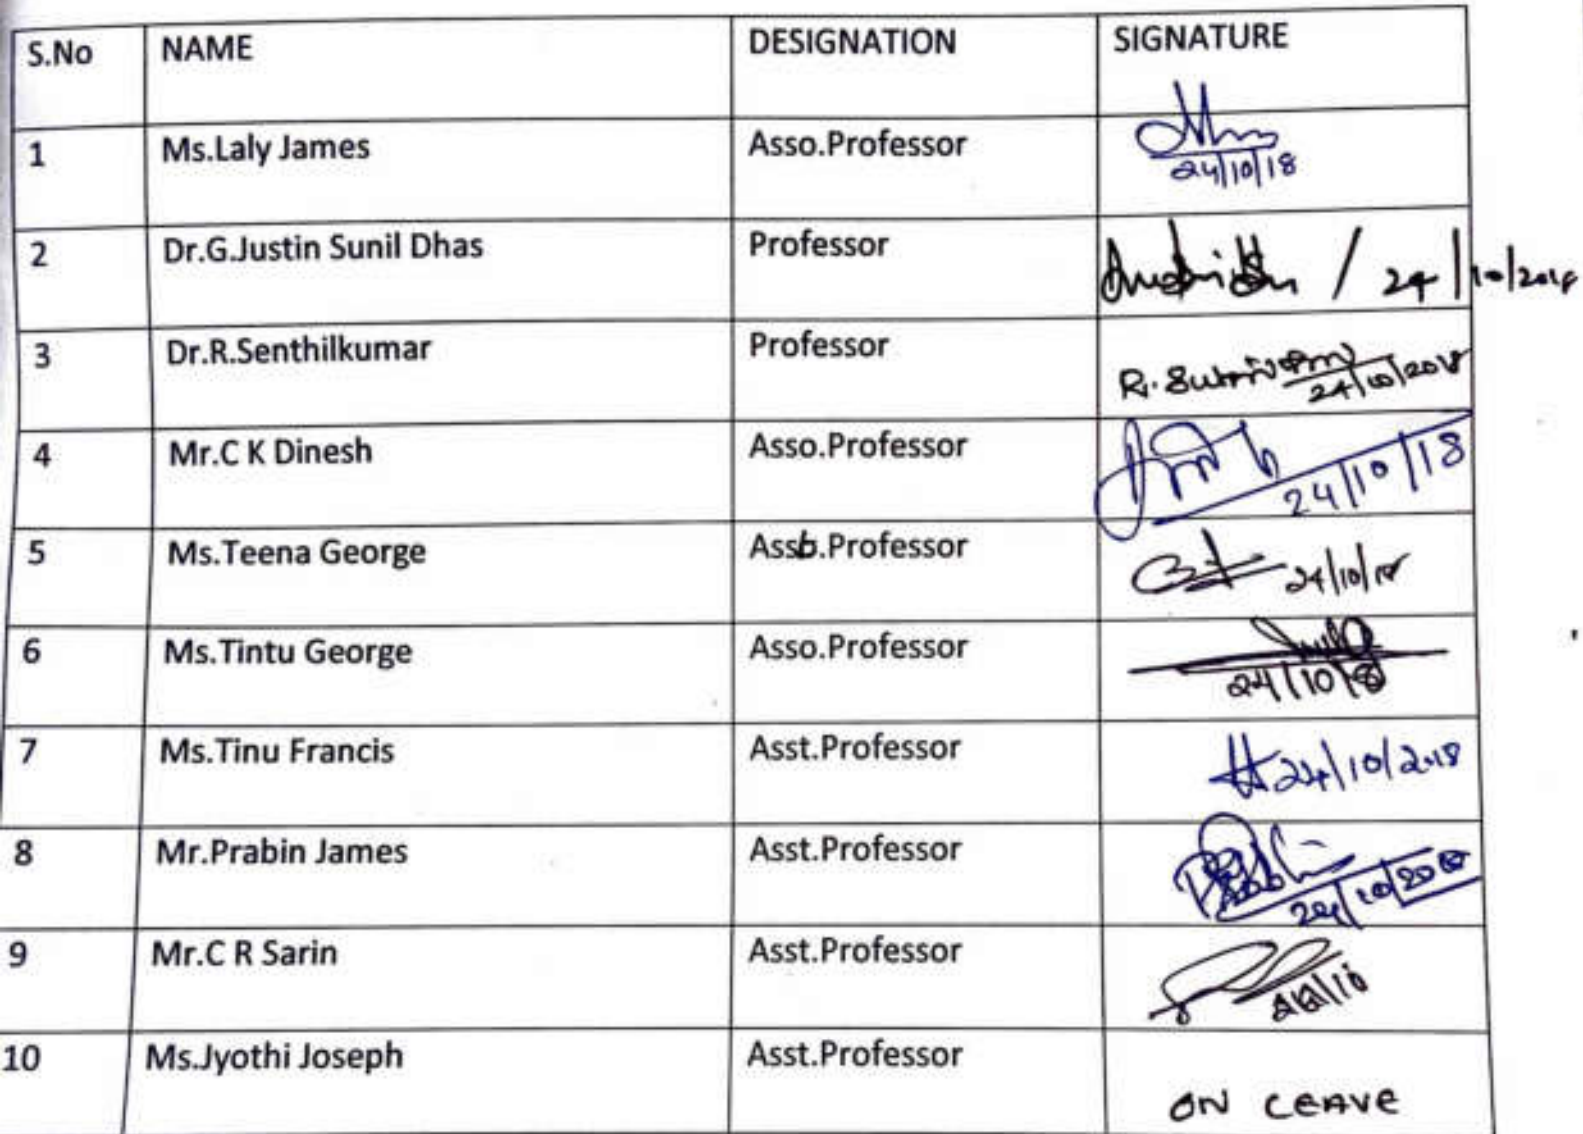 S.No NAME DESIGNATION SIGNATURE
1 Ms.Laly James Asso.Professor
24/10/18
2 Dr.G.Justin Sunil Dhas Professor / 24/10/2018
3 Dr.R.Senthilkumar Professor
24/10/2018
4 Mr.C K Dinesh Asso.Professor
24/10/18
5 Ms.Teena George Asso.Professor 24/10/18
6 Ms.Tintu George Asso.Professor
24/10/18
7 Ms.Tinu Francis Asst.Professor 24/10/2018
8 Mr.Prabin James Asst.Professor
24/10/2018
9 Mr.C R Sarin Asst.Professor
10 Ms.Jyothi Joseph Asst.Professor
ON LEAVE